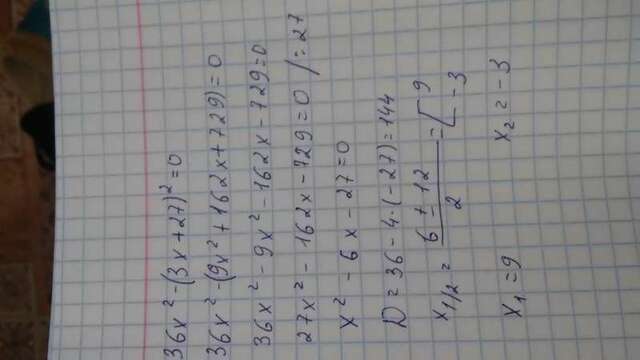 36x² - (3x + 27)² = 0
36x² - (9x² + 162x + 729) = 0
36x² - 9x² - 162x - 729 = 0
27x² - 162x - 729 = 0 /: 27
x² - 6x - 27 = 0
D = 36 - 4·(-27) = 144
x₁/₂ = (6 ± 12)/2 = [ 9
-3
x₁ = 9 x₂ = -3